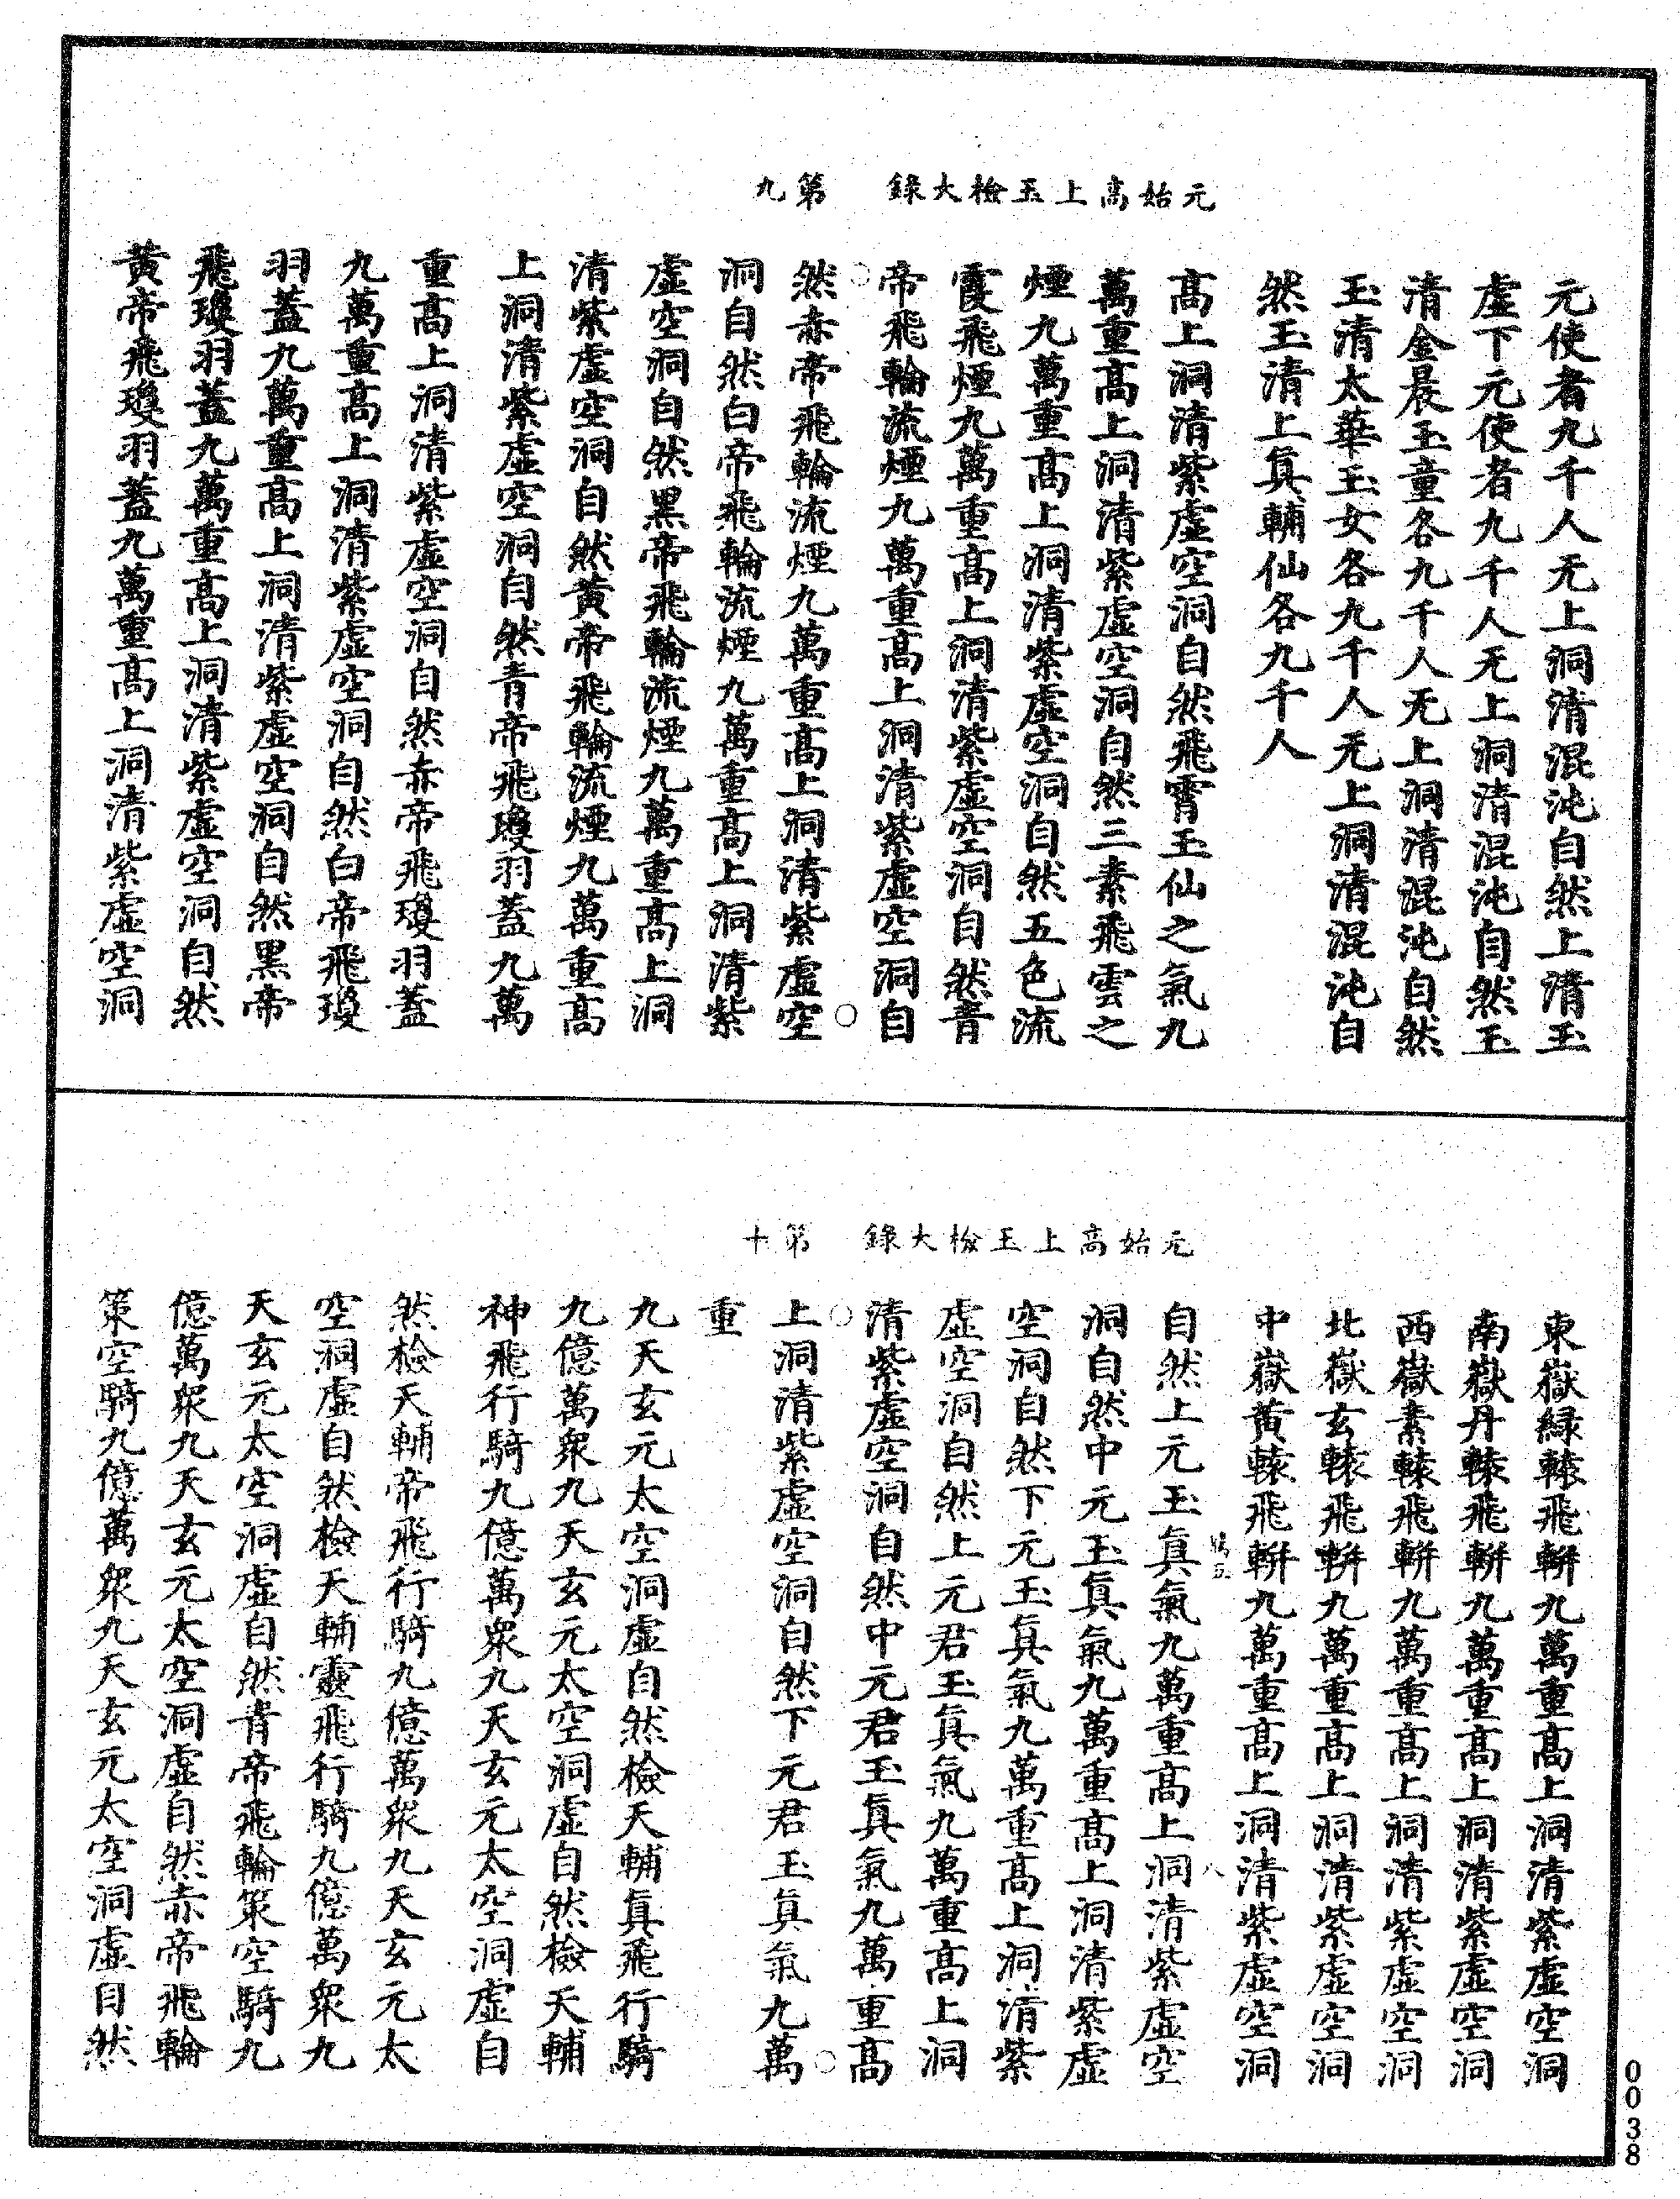 元始高上玉檢大錄　第九
元使者九千人无上洞清混沌自然上清玉
虛下元使者九千人无上洞清混沌自然玉
清金晨玉童各九千人无上洞清混沌自然
玉清太華玉女各九千人无上洞清混沌自
然玉清上眞輔仙各九千人
高上洞清紫虛空洞自然飛霄玉仙之氣九
萬重高上洞清紫虛空洞自然三素飛雲之
煙九萬重高上洞清紫虛空洞自然五色流
霞飛煙九萬重高上洞清紫虛空洞自然青
帝飛輪流煙九萬重高上洞清紫虛空洞自
然赤帝飛輪流煙九萬重高上洞清紫虛空
洞自然白帝飛輪流煙九萬重高上洞清紫
虛空洞自然黑帝飛輪流煙九萬重高上洞
清紫虛空洞自然黃帝飛輪流煙九萬重高
上洞清紫虛空洞自然青帝飛瓊羽蓋九萬
重高上洞清紫虛空洞自然赤帝飛瓊羽蓋
九萬重高上洞清紫虛空洞自然白帝飛瓊
羽蓋九萬重高上洞清紫虛空洞自然黑帝
飛瓊羽蓋九萬重高上洞清紫虛空洞自然
黃帝飛瓊羽蓋九萬重高上洞清紫虛空洞
元始高上玉檢大錄　第十
東嶽綠轅飛軿九萬重高上洞清紫虛空洞
南嶽丹轅飛軿九萬重高上洞清紫虛空洞
西嶽素轅飛軿九萬重高上洞清紫虛空洞
北嶽玄轅飛軿九萬重高上洞清紫虛空洞
中嶽黃轅飛軿九萬重高上洞清紫虛空洞
五　八
自然上元玉眞氣九萬重高上洞清紫虛空
洞自然中元玉眞氣九萬重高上洞清紫虛
空洞自然下元玉眞氣九萬重高上洞清紫
虛空洞自然上元君玉眞氣九萬重高上洞
清紫虛空洞自然中元君玉眞氣九萬重高
上洞清紫虛空洞自然下元君玉眞氣九萬
重
九天玄元太空洞虛自然檢天輔眞飛行騎
九億萬衆九天玄元太空洞虛自然檢天輔
神飛行騎九億萬衆九天玄元太空洞虛自
然檢天輔帝飛行騎九億萬衆九天玄元太
空洞虛自然檢天輔靈飛行騎九億萬衆九
天玄元太空洞虛自然青帝飛輪策空騎九
億萬衆九天玄元太空洞虛自然赤帝飛輪
策空騎九億萬衆九天玄元太空洞虛自然
0038